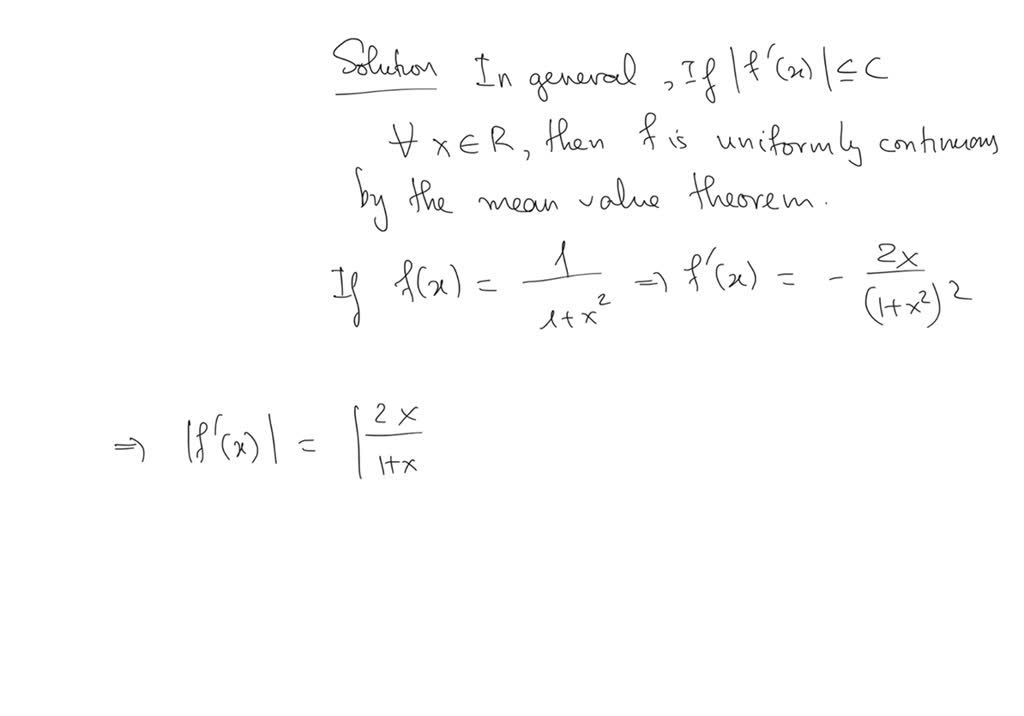 Solution In general, If |f'(x)| ≤ C
∀ x ∈ R, then f is uniformly continuous
by the mean value theorem.
If f(x) = 1/(1+x²) ⇒ f'(x) = - 2x/(1+x²)²
⇒ |f'(x)| = |2x/1+x